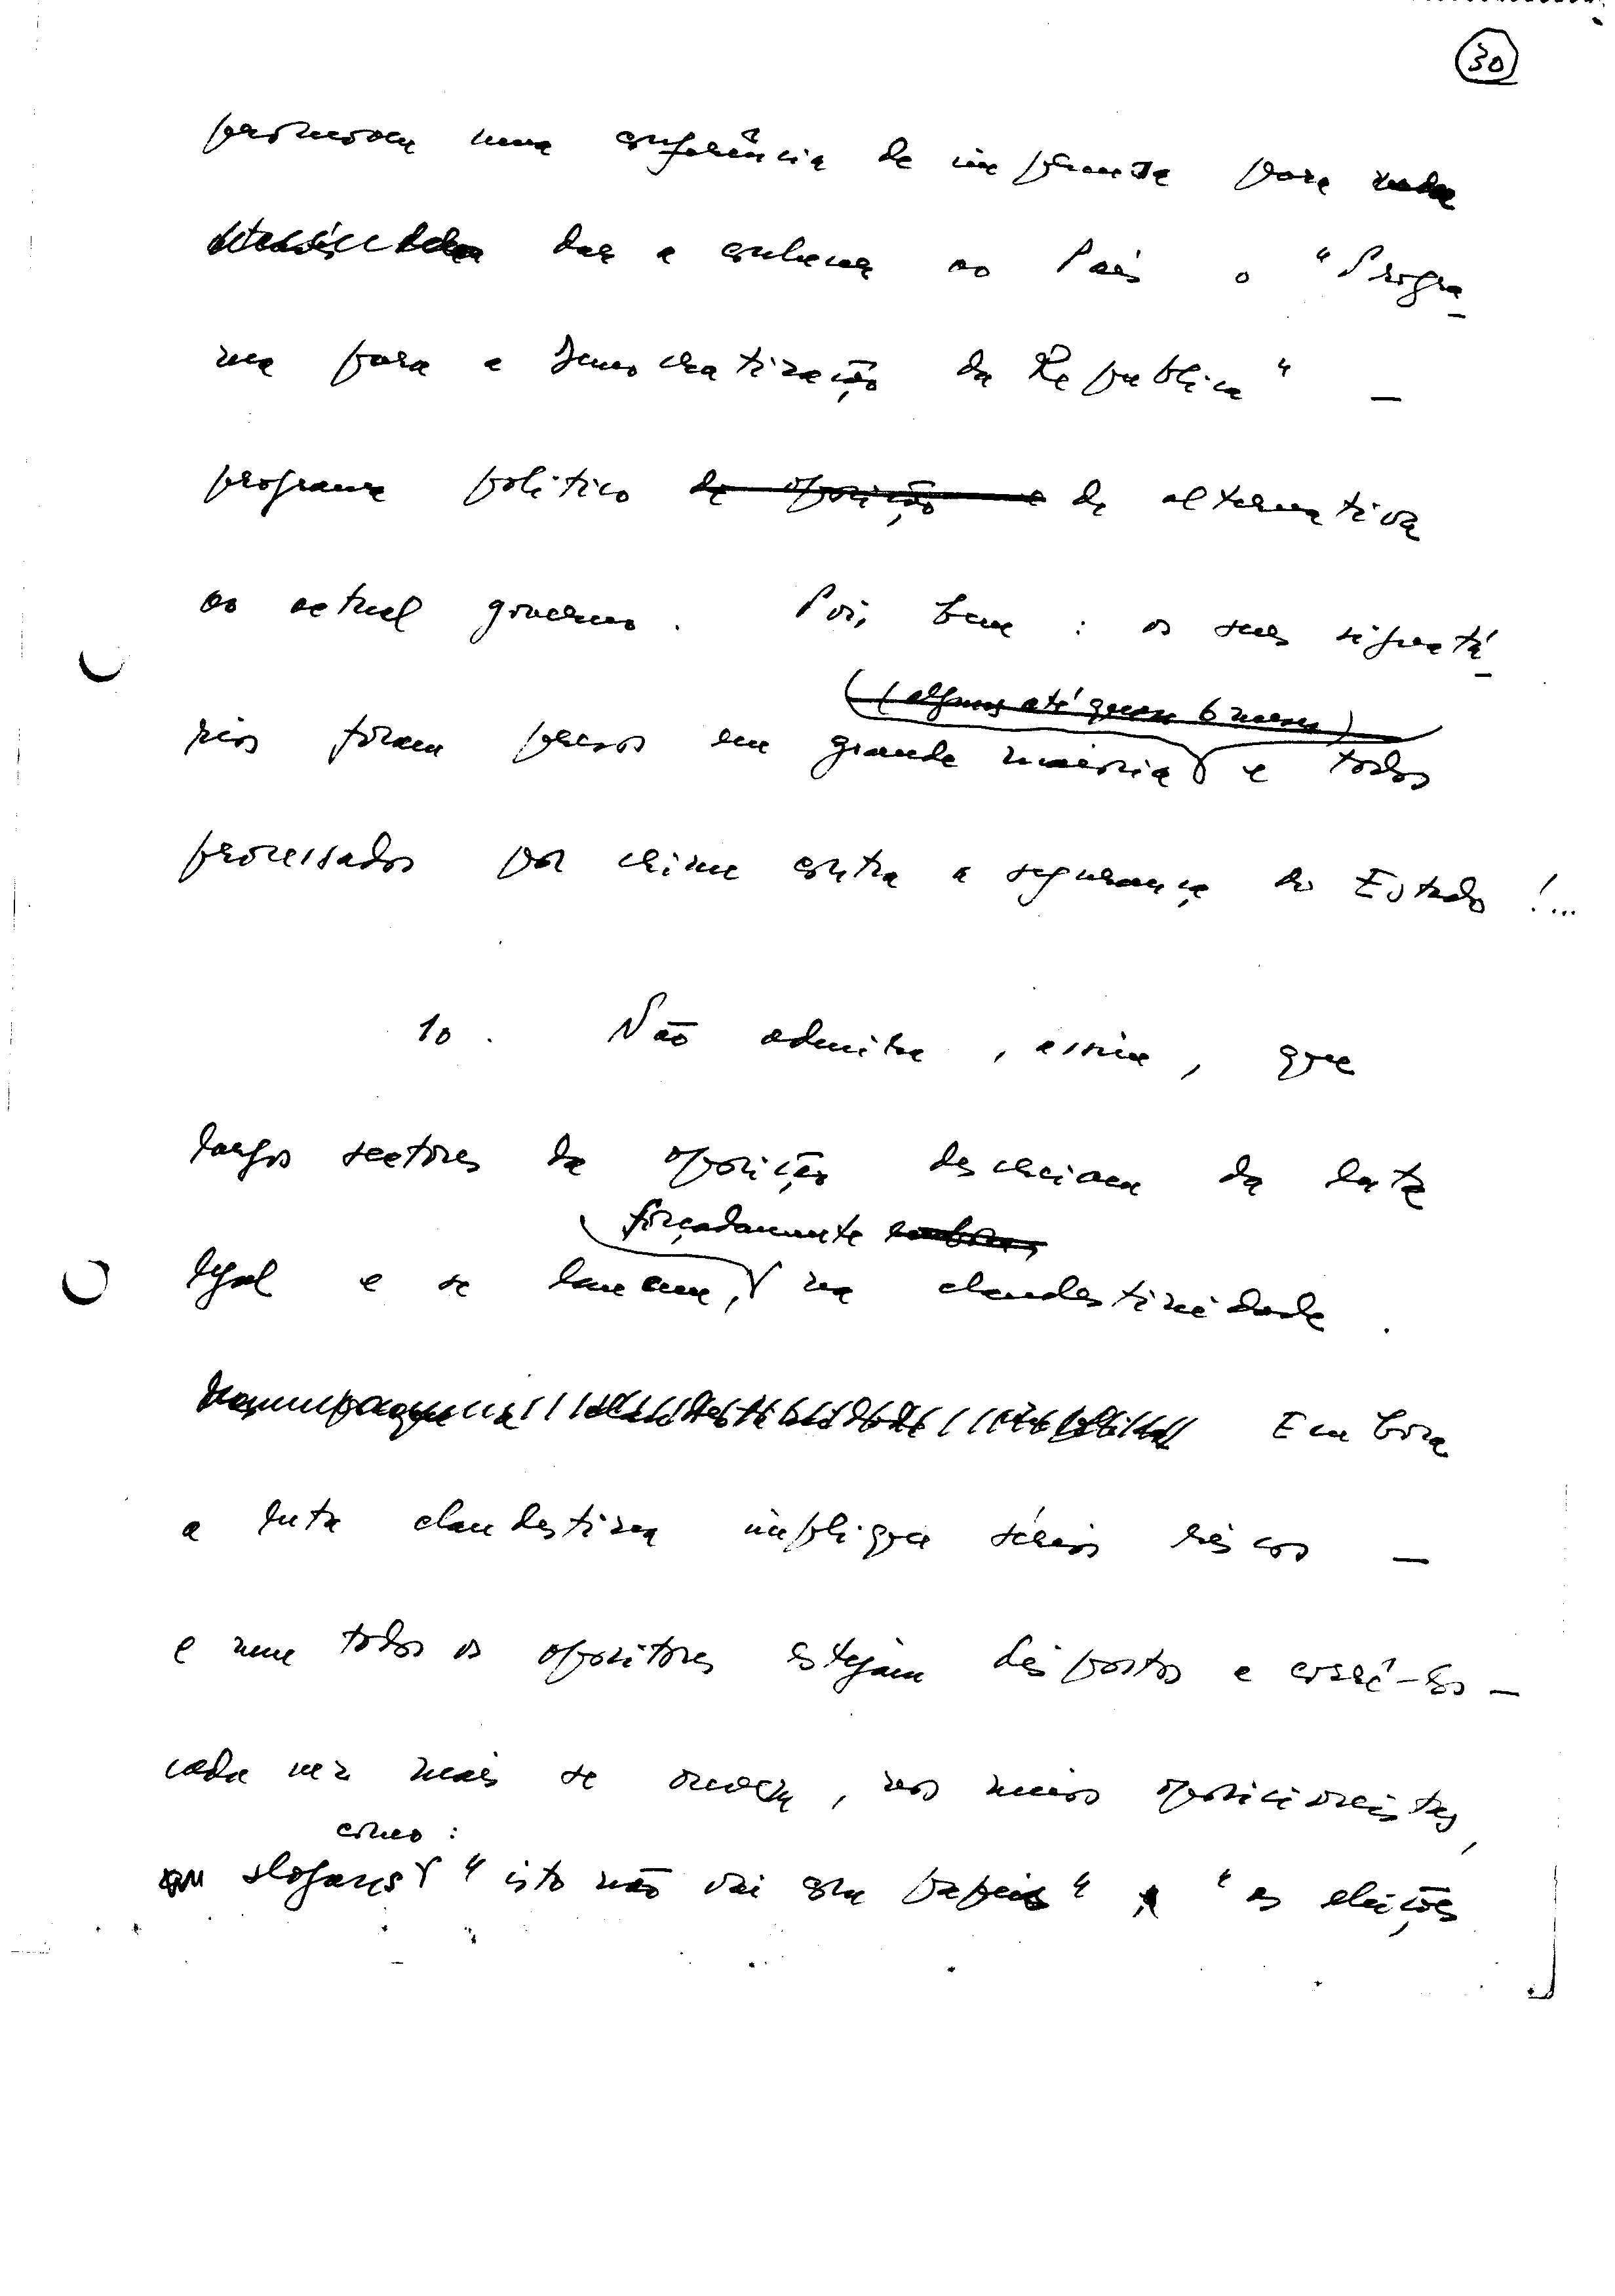 30
promover uma conferência de imprensa para
dar a conhecer ao País o "Progra-
ma para a Democratização da Republica" —
programa politico de oposição e de alternativa
ao actual governo. Pois bem: os seus signatá-
(alguns até quase 6 meses)
rios foram presos em grande maioria e todos
processados por crime contra a segurança do Estado!...
10. Não admira, assim, que
largos sectores da oposição descreiam da luta
forçadamente embora,
legal e se lancem, na clandestinidade.
Embora
a luta clandestina implique sérios riscos —
e nem todos os opositores estejam dispostos a corrê-los —
cada vez mais se ouvem, nos meios oposicionistas,
como:
slogans "isto não vai com papeis", "as eleições